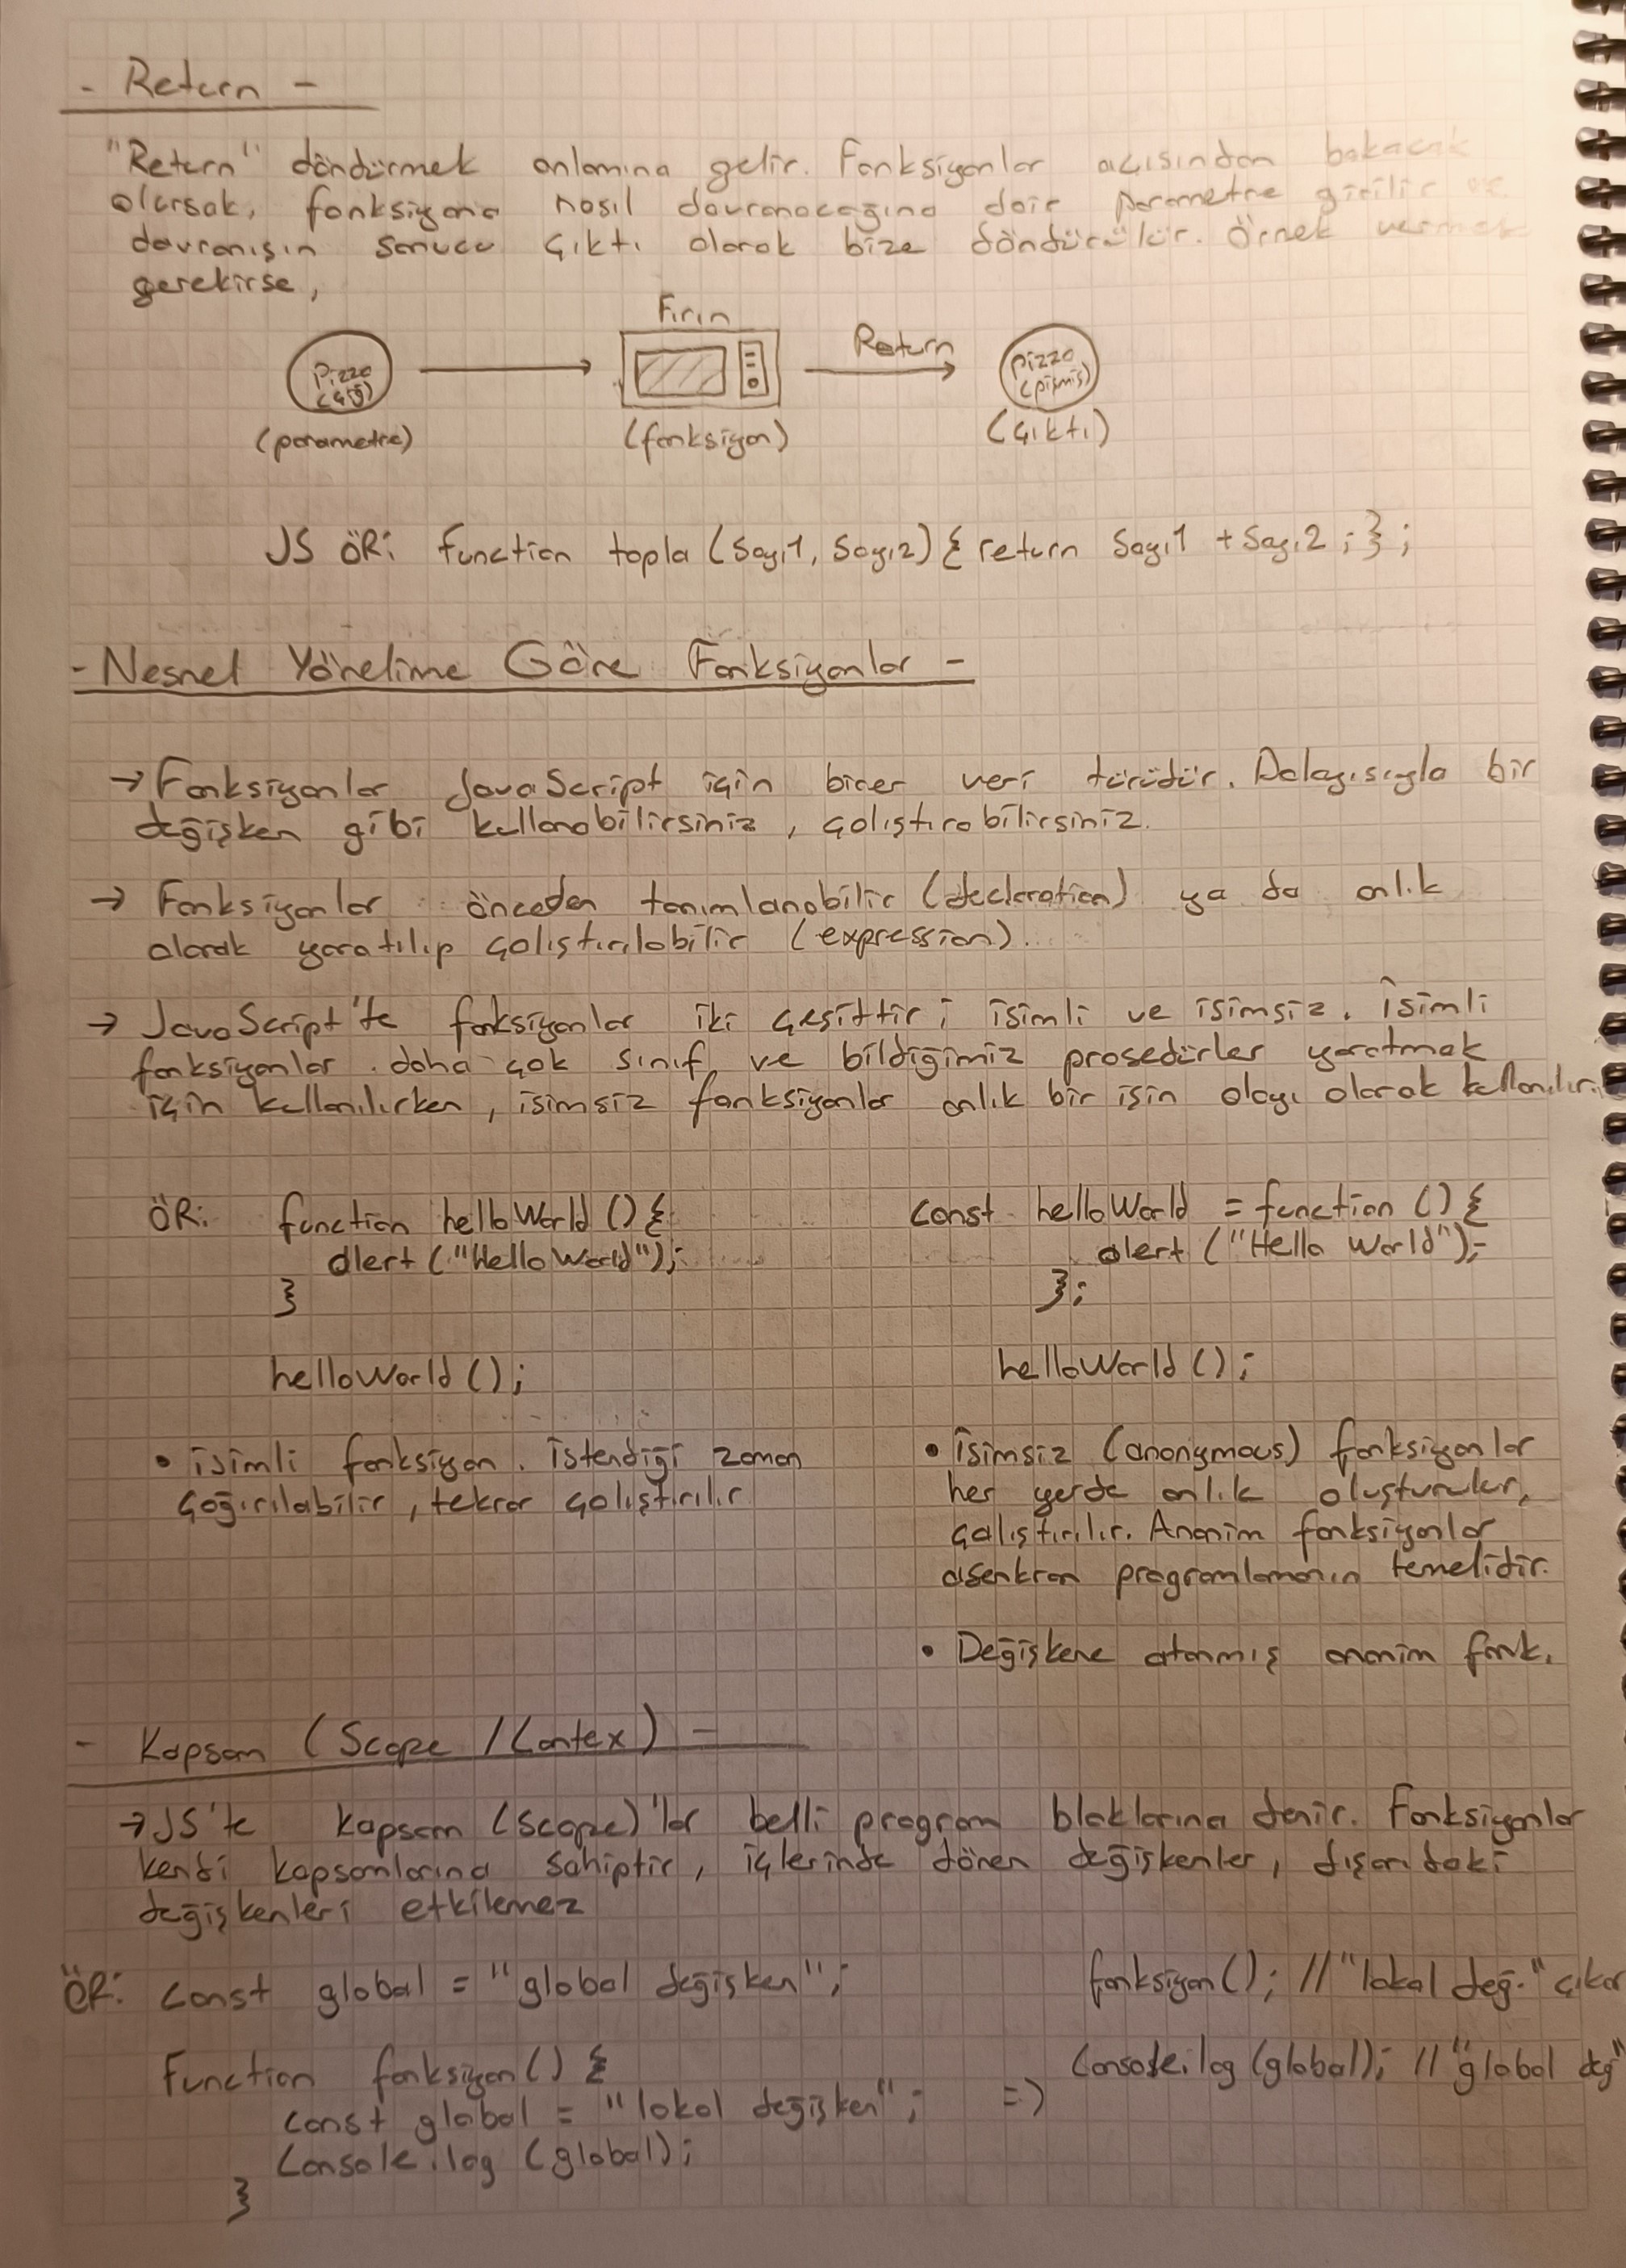 - Return -
"Return" döndürmek anlamına gelir. Fonksiyonlar açısından bakacak
olursak, fonksiyona nasıl davranacağına dair parametre girilir ve
davranışın sonucu çıktı olarak bize döndürülür. Örnek vermek
gerekirse,
Fırın
Return
Pizza
(çiğ)
pizza
(pişmiş)
(parametre)
(fonksiyon)
(çıktı)
JS ÖR: function topla (Sayı1, Sayı2) { return Sayı1 + Sayı2 ; } ;
- Nesnel Yönelime Göre Fonksiyonlar -
→ Fonksiyonlar JavaScript için birer veri türüdür. Dolayısıyla bir
değişken gibi kullanabilirsiniz, çalıştırabilirsiniz.
→ Fonksiyonlar önceden tanımlanabilir (declaration) ya da anlık
olarak yaratılıp çalıştırılabilir (expression).
→ JavaScript'te fonksiyonlar iki çeşittir; isimli ve isimsiz. İsimli
fonksiyonlar daha çok sınıf ve bildiğimiz prosedürler yaratmak
için kullanılırken, isimsiz fonksiyonlar anlık bir işin olayı olarak kullanılır.
ÖR: function helloWorld () {
alert ("Hello World");
}
helloWorld ();
• isimli fonksiyon. İstendiği zaman
çağırılabilir, tekrar çalıştırılır
const helloWorld = function () {
alert ("Hello World");
};
helloWorld ();
• İsimsiz (anonymous) fonksiyonlar
her yerde anlık oluşturulur,
çalıştırılır. Anonim fonksiyonlar
asenkron programlamanın temelidir.
• Değişkene atanmış anonim fonk.
- Kapsam (Scope / Contex) -
→ JS'te kapsam (scope)'lar belli program bloklarına denir. Fonksiyonlar
kendi kapsamlarına sahiptir, içlerinde dönen değişkenler, dışarıdaki
değişkenleri etkilemez
ÖR: const global = "global değişken";
Function fonksiyon () {
const global = "lokal değişken" ;
Console.log (global);
}
=>
fonksiyon (); // "lokal değ." çıkar
Console.log (global); // "global değ"